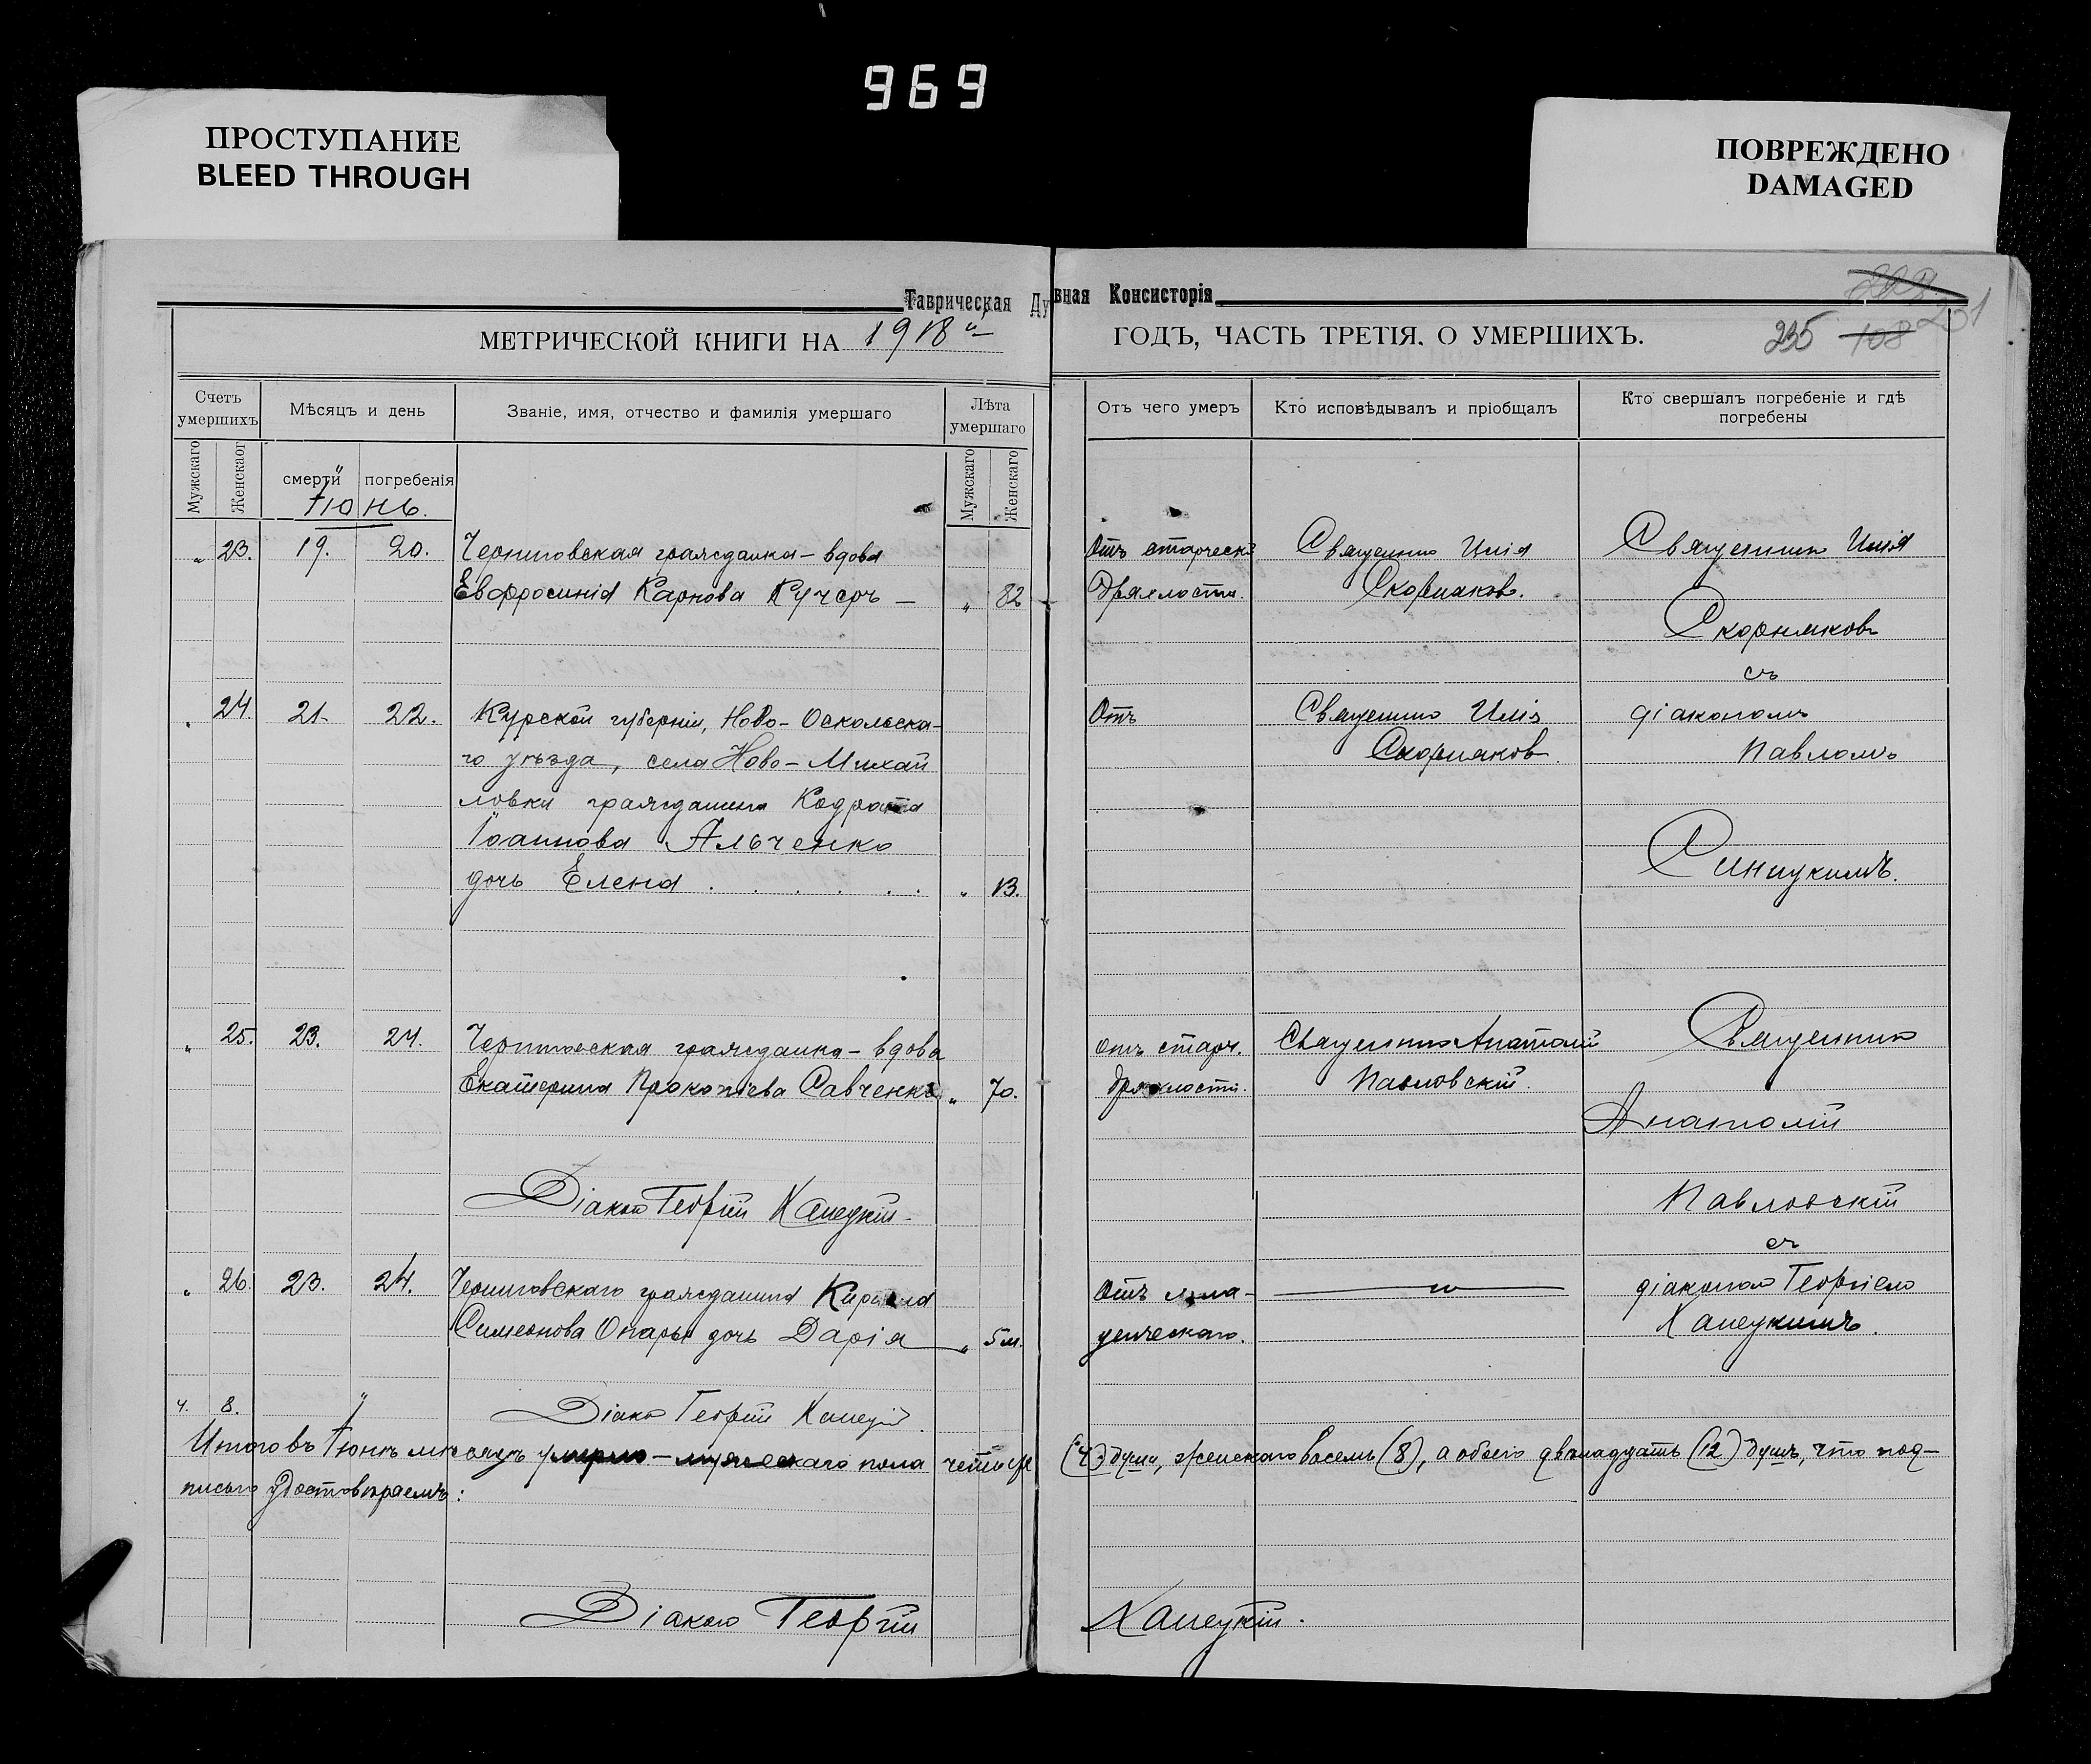 969
ПРОСТУПАНИЕ
BLEED THROUGH
ПОВРЕЖДЕНО
DAMAGED
Таврическая Ду
вная Консисторія
МЕТРИЧЕСКОЙ КНИГИ НА 1918й
ГОДЪ, ЧАСТЬ ТРЕТІЯ. О УМЕРШИХЪ.
235 108 201
Счетъ умершихъ
Мѣсяцъ и день
Званіе, имя, отчество и фамилія умершаго
Лѣта умершаго
Отъ чего умеръ
Кто исповѣдывалъ и пріобщалъ
Кто свершалъ погребеніе и гдѣ погребены
Мужскаго
Женскаог
смерти
погребенія
Мужскаго
Женскаго
Іюнь.
" 23. 19. 20. Черниговская гражданка - вдова
Евфросинія Карпова Кучеръ — " 82
Отъ старческ.
дряхлости.
Священник Илія
Скорняков.
Священник Илія
Скорняковъ
съ
діакономъ
Павломъ
Синицкимъ.
" 24. 21. 22. Курской губерніи, Ново-Оскольска-
го уѣзда, села Ново-Михай
ловки гражданина Кодрата
Іоаннова Альченко
дочь Елена . . . . . . " 13.
Отъ
Священник Илія
Скорняков.
" 25. 23. 24. Черниговская гражданка - вдова
Екатерина Прокопіева Савченко " 70.
отъ старч.
дряхлости.
Священник Анатолій
Павловскій.
Священник
Анатолій
Павловскій
съ
діаконом Георгіем
Капецкимъ.
Діакон Георгій Капецкій
" 26. 23. 24. Черниговскаго гражданина Кирилла
Симеонова Опары дочь Дарія " 5 м.
Отъ мла-
денческаго.
Діакон Георгій Капецкій
4. 8.
Итого въ Іюнѣ мѣсяцѣ умерло - мужескаго пола четыре (4) души, женскаго восемь (8), а обоего двѣнадцать (12) душъ, что под-
писью удостовѣряемъ:
Діакон Георгій Капецкій.